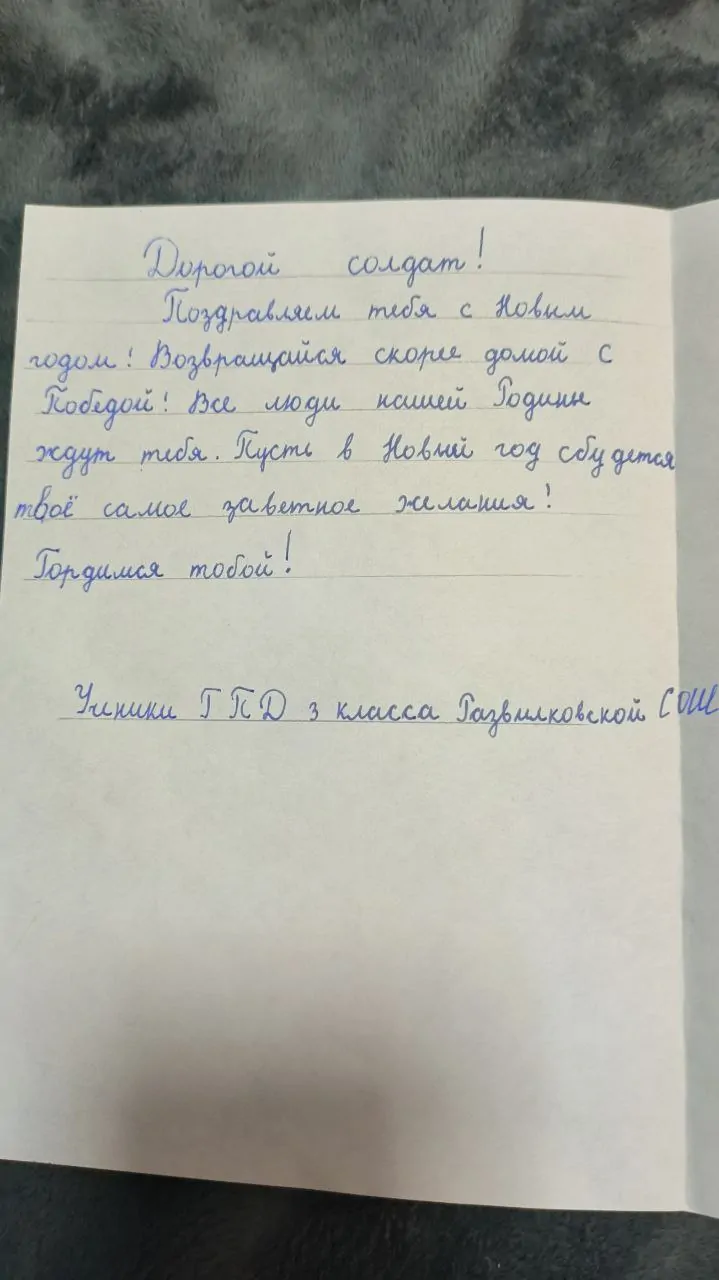 Дорогой солдат!
Поздравляем тебя с Новым
годом! Возвращайся скорее домой с
Победой! Все люди нашей Родины
ждут тебя. Пусть в Новый год сбудется
твоё самое заветное желания!
Гордимся тобой!
Ученики ГПД 3 класса Развилковской СОШ